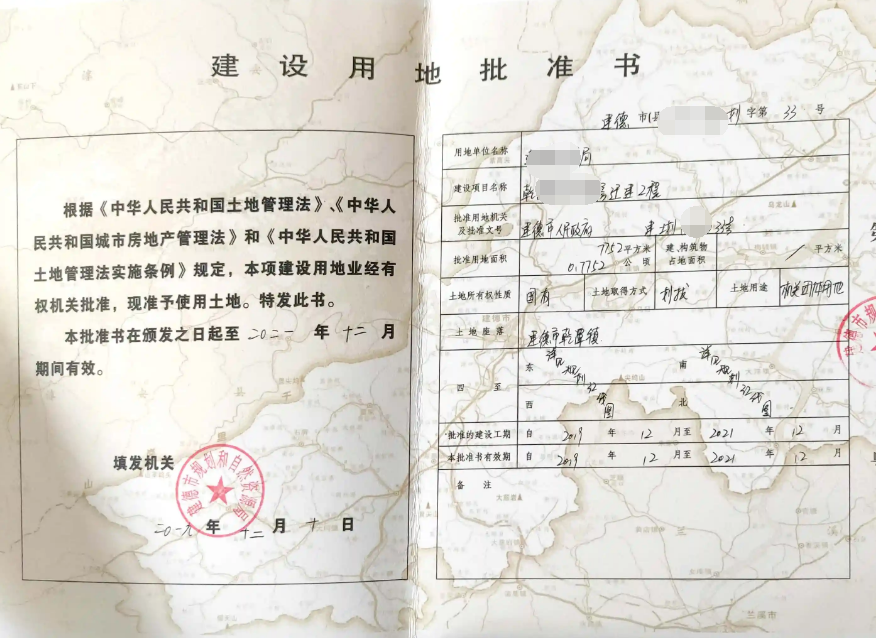 建设用地批准书
根据《中华人民共和国土地管理法》、《中华人
民共和国城市房地产管理法》和《中华人民共和国
土地管理法实施条例》规定，本项建设用地业经有
权机关批准，现准予使用土地。特发此书。
本批准书在颁发之日起至 二〇二一 年 十二 月
期间有效。
填发机关
建德市规划和自然资源局
二〇一九 年 十二 月 十 日
建德 市(县 划 字第 33 号
用地单位名称 局
建设项目名称 乾 迁建工程
批准用地机关
及批准文号 建德市人民政府 建 划 33号
批准用地面积 7752 平方米
0.7752 公顷
建、构筑物
占地面积 / 平方米
土地所有权性质 国有 土地取得方式 划拨 土地用途 机关团体用地
土地座落 建德市乾潭镇
四至
东 详见规划红线图 南 详见规划红线图
西 北
批准的建设工期 自 2019 年 12 月至 2021 年 12 月
本批准书有效期 自 2019 年 12 月至 2021 年 12 月
备注
兰溪市